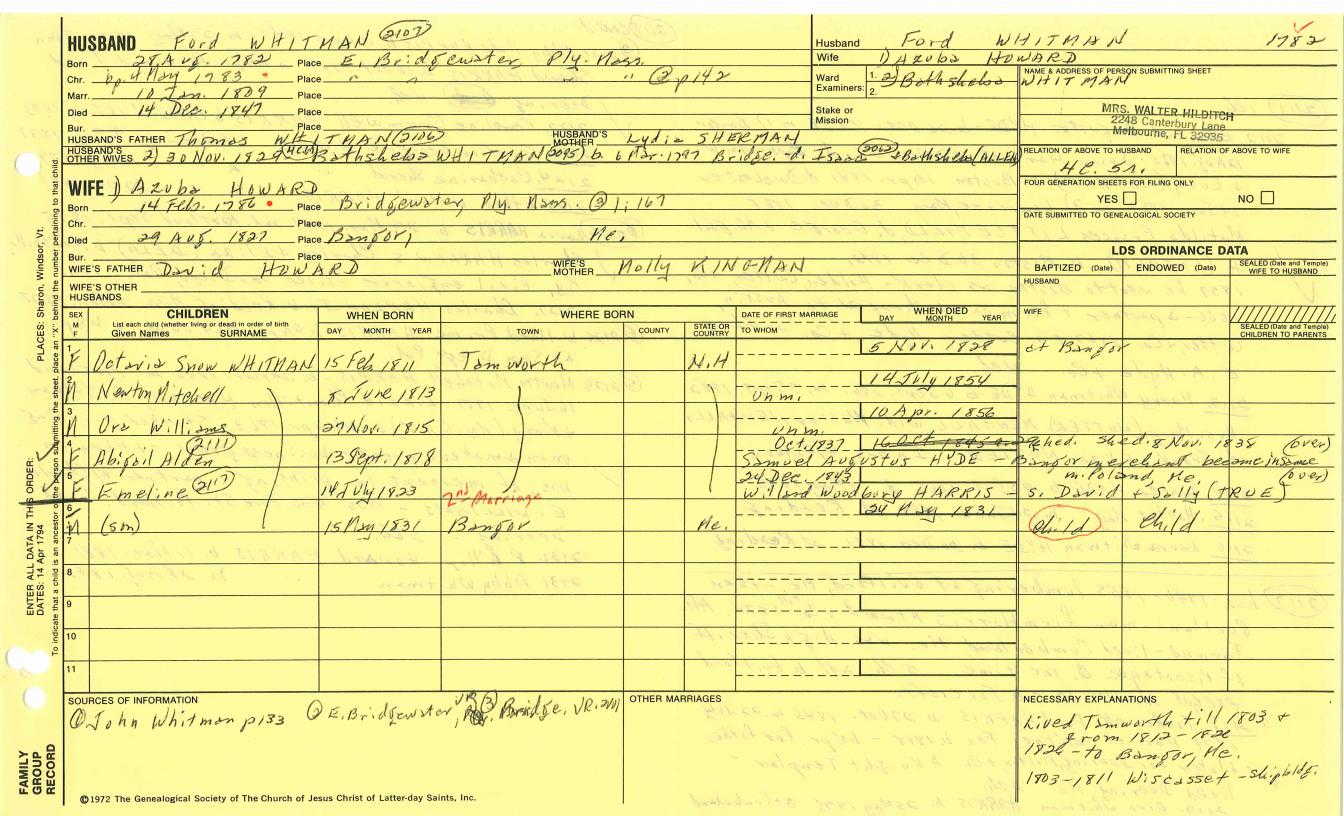 HUSBAND Ford WHITMAN (2107)
Born 28 Aug. 1782 Place E. Bridgewater, Ply. Mass.
Chr. bp. 4 May 1783 Place " " " ② p142
Marr. 10 Jan. 1809 Place
Died 14 Dec. 1847 Place
Bur. Place
HUSBAND'S FATHER Thomas WHITMAN (2106) HUSBAND'S MOTHER Lydia SHERMAN
HUSBAND'S OTHER WIVES 2) 30 Nov. 1829 Bathsheba WHITMAN (2095) b. 6 Mar. 1797 Bridge. d. Isaac (2062) + Bathsheba (ALLEN)
WIFE 1) Azuba HOWARD
Born 14 Feb. 1786 Place Bridgewater, Ply. Mass. ③ 1:167
Chr. Place
Died 29 Aug. 1827 Place Bangor, Me.
Bur. Place
WIFE'S FATHER David HOWARD WIFE'S MOTHER Molly KINGMAN
WIFE'S OTHER HUSBANDS
Husband Ford WHITMAN 1782
Wife 1) Azuba HOWARD
Ward Examiners: 1. 2) Bathsheba WHITMAN
2.
Stake or Mission
NAME & ADDRESS OF PERSON SUBMITTING SHEET
MRS. WALTER HILDITCH
2248 Canterbury Lane
Melbourne, FL 32935
RELATION OF ABOVE TO HUSBAND RELATION OF ABOVE TO WIFE
4c. 5r.
FOUR GENERATION SHEETS FOR FILING ONLY
YES NO
DATE SUBMITTED TO GENEALOGICAL SOCIETY
LDS ORDINANCE DATA
BAPTIZED (Date) ENDOWED (Date) SEALED (Date and Temple) WIFE TO HUSBAND
HUSBAND
WIFE
SEALED (Date and Temple) CHILDREN TO PARENTS
SEX M F CHILDREN WHEN BORN WHERE BORN DATE OF FIRST MARRIAGE WHEN DIED
List each child (whether living or dead) in order of birth
Given Names SURNAME DAY MONTH YEAR TOWN COUNTY STATE OR COUNTRY TO WHOM DAY MONTH YEAR
1 F Octavia Snow WHITMAN 15 Feb. 1811 Tamworth N.H 5 Nov. 1828 at Bangor
2 M Newton Mitchell 8 June 1813 unm. 14 July 1854
3 M Ora Williams 27 Nov. 1815 unm. 10 Apr. 1856
4 F Abigail Alden (2111) 13 Sept. 1818 Oct. 1837 8 Nov. 1838 (over)
Samuel Augustus HYDE - Bangor merchant became insane
5 F Emeline (2117) 14 July 1823 24 Dec. 1843 m. Poland, Me. (over)
Willard Woodbury HARRIS - s. David + Sally (TRUE)
2nd Marriage
6 M (sm) 15 May 1831 Bangor Me. 24 May 1831 Child Child
7
8
9
10
11
SOURCES OF INFORMATION
① John Whitman p133 ② E. Bridgewater VR ③ Bridge. VR.
OTHER MARRIAGES
NECESSARY EXPLANATIONS
Lived Tamworth till 1803 +
from 1812-1826
1826 - to Bangor, Me.
1803-1811 Wiscasset - shipbldg.
©1972 The Genealogical Society of The Church of Jesus Christ of Latter-day Saints, Inc.
FAMILY GROUP RECORD
ENTER ALL DATA IN THIS ORDER:
DATES: 14 Apr 1794 PLACES: Sharon, Windsor, Vt.
To indicate that a child is an ancestor of the person submitting the sheet, place an "X" behind the number pertaining to that child.